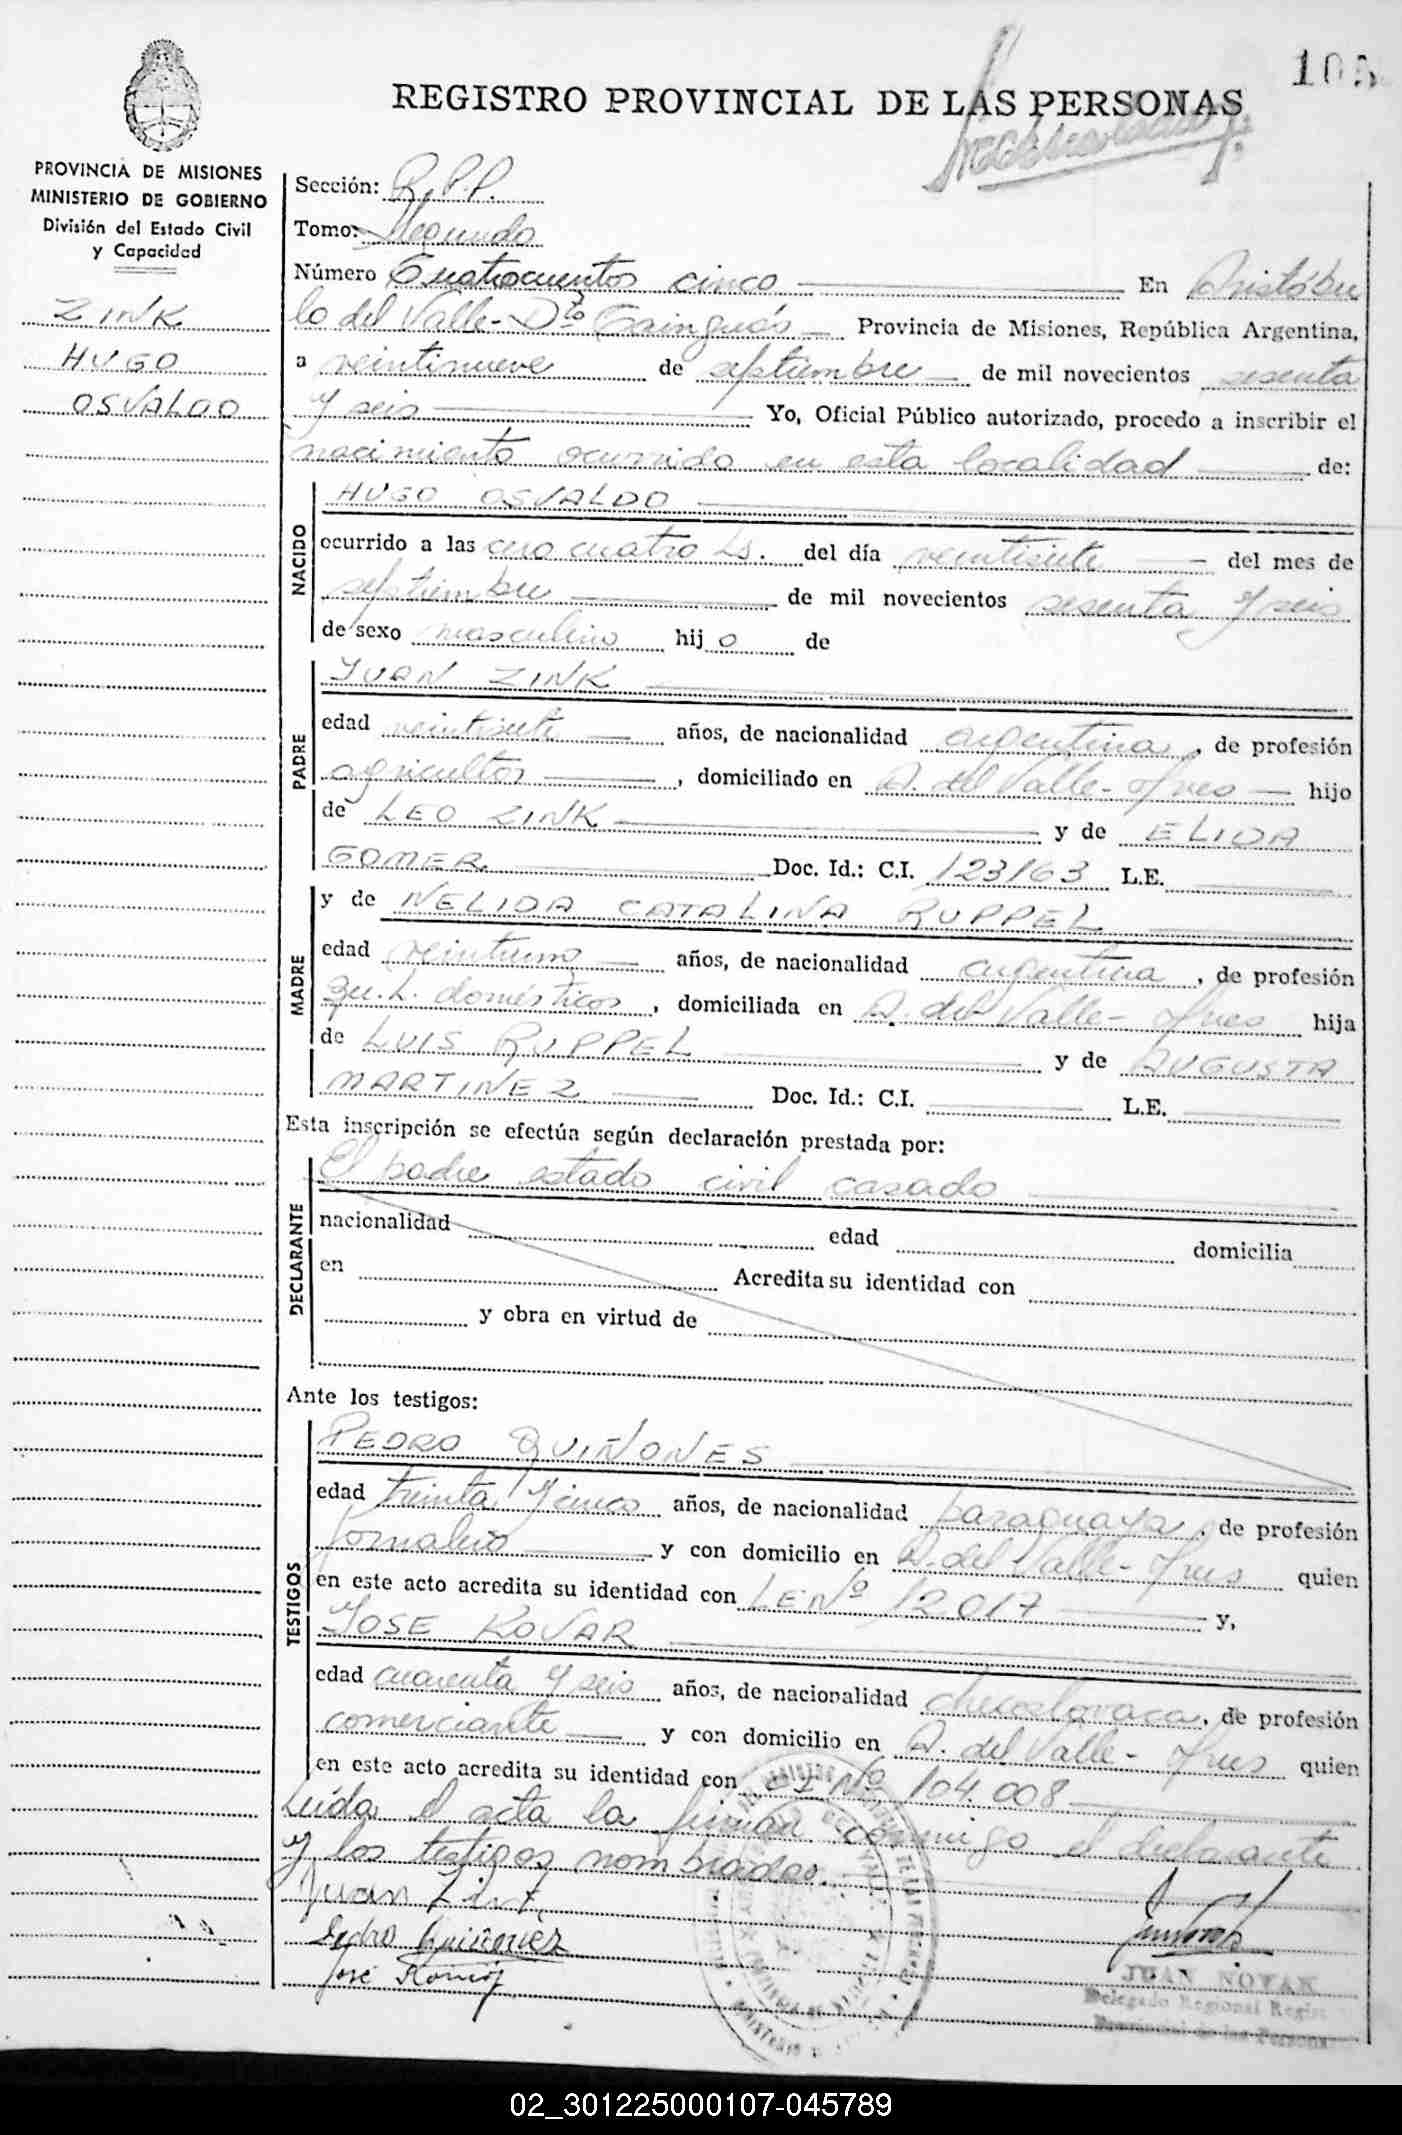 105
REGISTRO PROVINCIAL DE LAS PERSONAS
PROVINCIA DE MISIONES
MINISTERIO DE GOBIERNO
División del Estado Civil
y Capacidad
ZINK
HUGO
OSVALDO
Sección: R.P.P.
Tomo: Segundo
Número Cuatrocientos cinco En Aristóbu
lo del Valle - Dto Cainguás Provincia de Misiones, República Argentina,
a veintinueve de septiembre de mil novecientos sesenta
y seis Yo, Oficial Público autorizado, procedo a inscribir el
nacimiento ocurrido en esta localidad de:
NACIDO
HUGO OSVALDO
ocurrido a las cero cuatro hs. del día veintisiete del mes de
septiembre de mil novecientos sesenta y seis
de sexo masculino hijo de
PADRE
JUAN ZINK
edad veintisiete años, de nacionalidad argentina, de profesión
agricultor, domiciliado en A. del Valle - Mnes hijo
de LEO ZINK y de ELIDA
GOMER Doc. Id.: C.I. 123163 L.E.
MADRE
y de NELIDA CATALINA RUPPEL
edad veintiuno años, de nacionalidad argentina, de profesión
domésticos, domiciliada en A. del Valle - Mnes hija
de LUIS RUPPEL y de AUGUSTA
MARTINEZ Doc. Id.: C.I. L.E.
Esta inscripción se efectúa según declaración prestada por:
DECLARANTE
El padre estado civil casado
nacionalidad edad domicilia
en Acredita su identidad con
y obra en virtud de
Ante los testigos:
TESTIGOS
PEDRO QUIÑONES
edad treinta y cinco años, de nacionalidad paraguaya, de profesión
jornalero y con domicilio en A. del Valle - Mnes quien
en este acto acredita su identidad con LE Nº 12017 y,
JOSE KOVAR
edad cuarenta y seis años, de nacionalidad checoslovaca, de profesión
comerciante y con domicilio en A. del Valle - Mnes quien
en este acto acredita su identidad con C I Nº 104.008
Leída el acta la firman conmigo el declarante
y los testigos nombrados.
Juan Zink
Pedro Quiñonez
José
JUAN NOVAK
Delegado Regional Regist
Provincial de las Personas
02_301225000107-045789